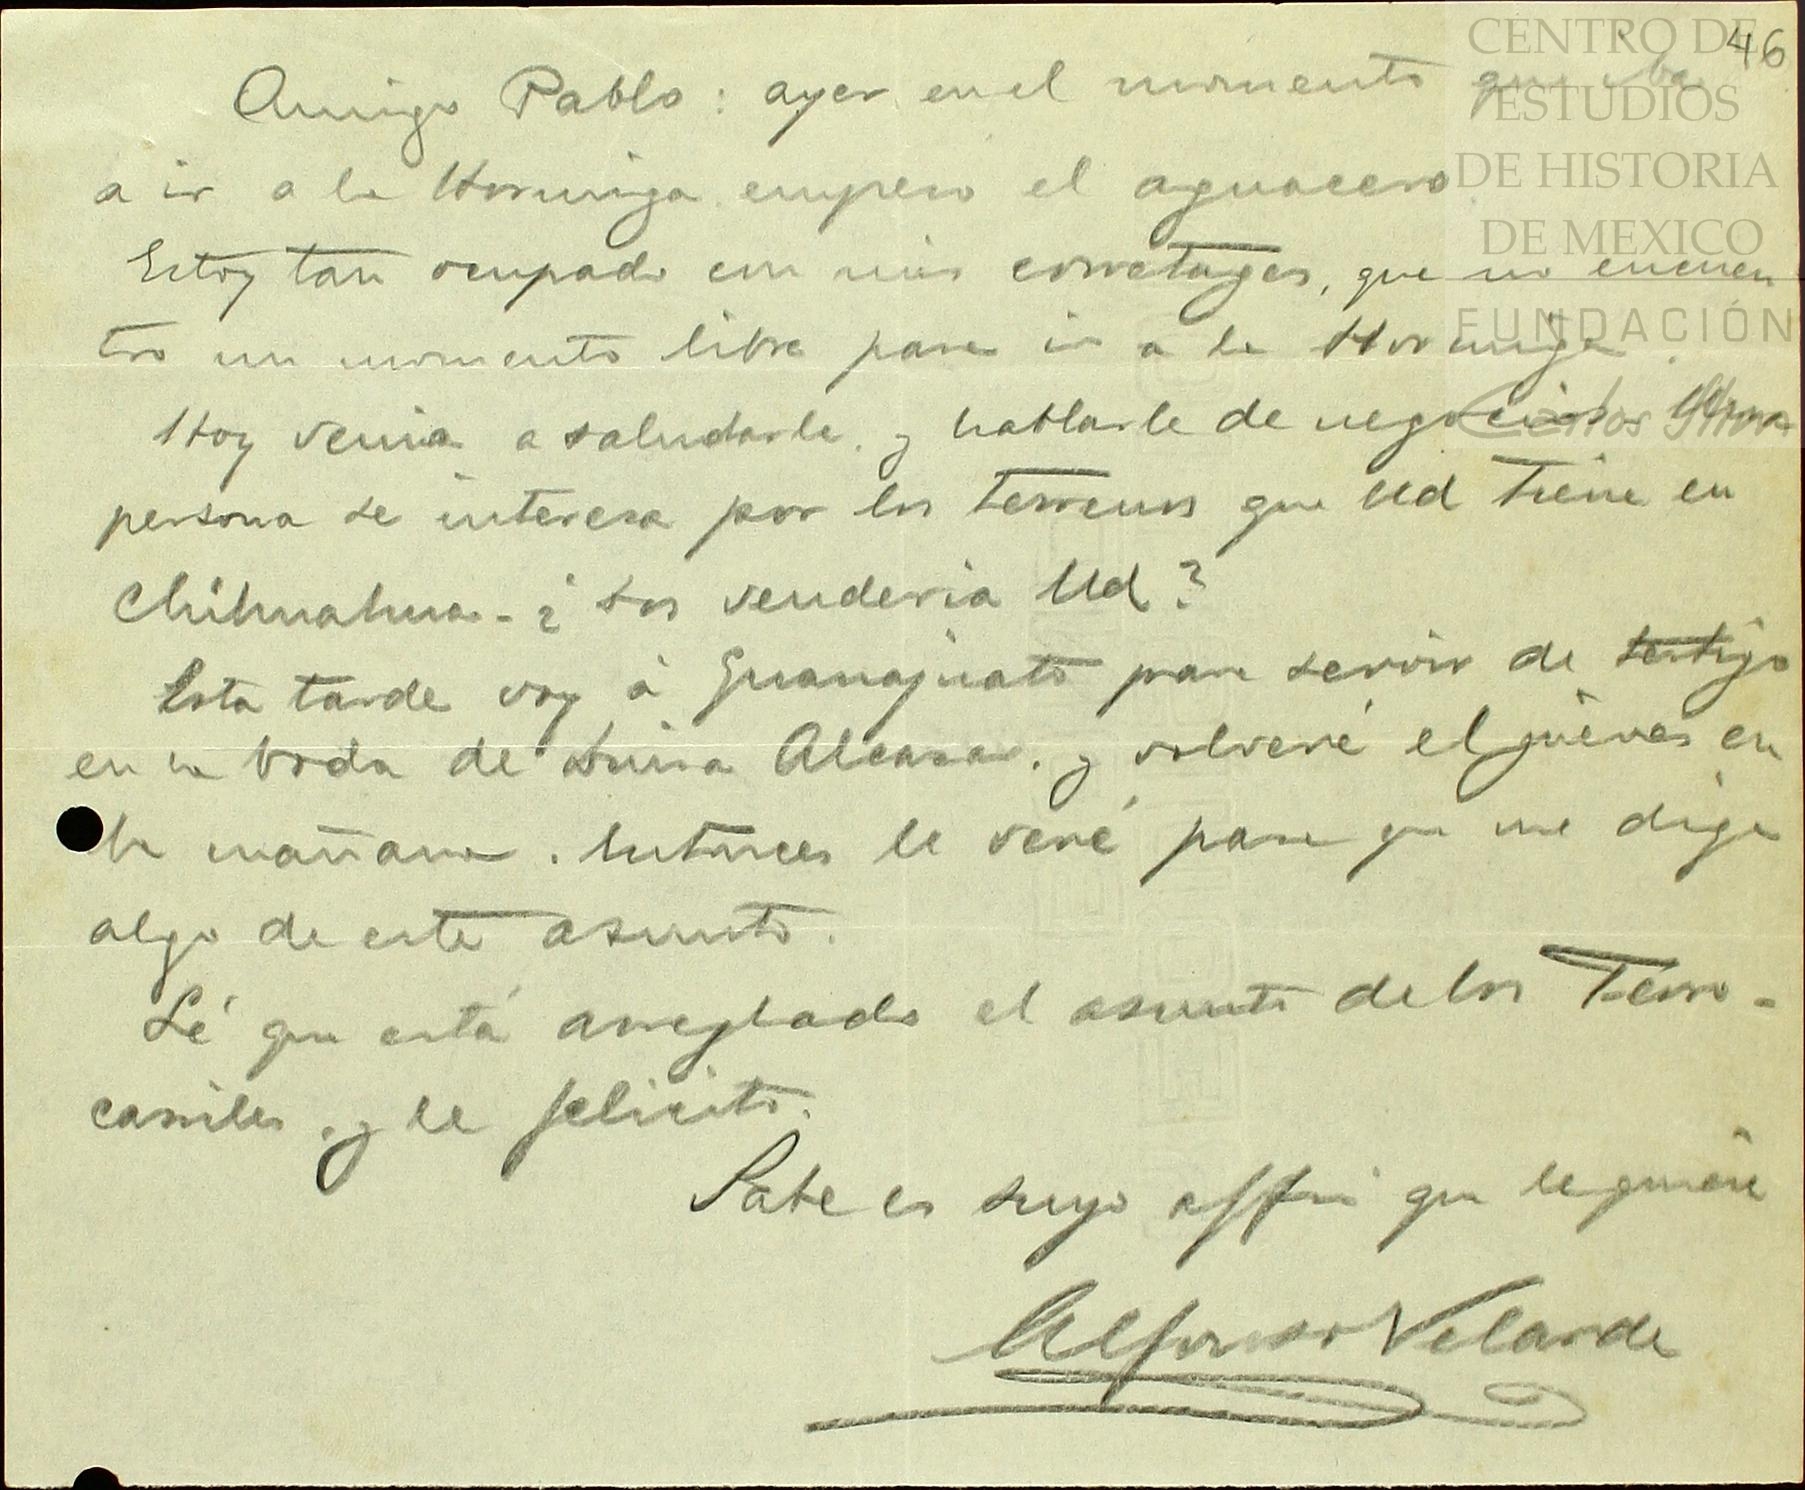 46
CENTRO DE
ESTUDIOS
DE HISTORIA
DE MEXICO
FUNDACIÓN
Amigo Pablo: ayer en el momento que iba
a ir a la Hormiga empezo el aguacero
Estoy tan ocupado con mis corretages, que no encuen
tro un momento libre para ir a la Hormiga.
Hoy venia a saludarle. y hablarle de negocios
persona se interesa por los terrenos que Ud tiene en
Chihuahua - ¿Los venderia Ud?
Esta tarde voy á Guanajuato para servir de testigo
en la boda de Luisa Alcazar. y volveré el jueves en
la mañana. Entonces le veré para que me diga
algo de este asunto.
Sé que está arreglado el asunto de los Ferro-
carriles. y le felicito.
Sabe es suyo affmo que le quiere
Alfonso Velarde